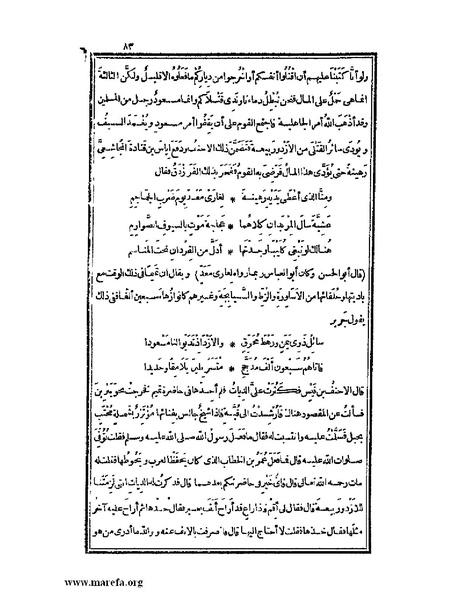 ٨٣
ولو أنا كتبنا عليهم أن اقتلوا أنفسكم أو اخرجوا من دياركم ما فعلوه الا قليل ولكن الثالثة
انما هى حمل على المال فنحن نبطل دماءنا وندى قتلاكم وانما مسعود رجل من المسلمين
وقد أذهب الله أمر الجاهلية فاجتمع القوم على أن يقفوا أمر مسعود ويغمد السيف
ويودى سائر القتلى من الازد وربيعة فتضمن ذلك الاحنف ودفع اياس بن قتادة المجاشعى
رهينة حتى يؤدى هذا المال فرضى به القوم ففخر بذلك الفرزدق فقال
ومنا الذى أعطى يديه رهينة * لغارى معد يوم ضرب الجماجم
عشية سال المربدان كلاهما * عجاجة موت بالسيوف الصوارم
هنالك لو تبغى كليبا وجدتها * أذل من القردان تحت المناسم
(قال أبو الحسن وكان أبو العباس ربما رواه لغارى معد) ويقال ان تميما فى ذلك الوقت مع
باديتها وحلفائها من الاساورة والزط والسيابجة وغيرهم كانوا زهاء سبعين ألفا ففى ذلك
يقول جرير
سائل ذوى يمن ورهط محرق * والازد اذ ندبوا لنا مسعودا
فاتاهم سبعون ألف مدجج * متسربلين يلامقا وحديدا
قال الاحنف بن قيس فكثرت على الديات فلم أجدها فى حاضرة تميم فخرجت نحو يبرين
فسألت عن المقصود هنالك فأرشدت الى قبة فاذا شيخ جالس بفنائها مؤتزر بشملة محتب
بحبل فسلمت عليه وانتسبت له فقال ما فعل رسول الله صلى الله عليه وسلم فقلت توفى
صلوات الله عليه قال فما فعل عمر بن الخطاب الذى كان يحفظ العرب ويحوطها فقلت له
مات رحمه الله تعالى قال فأى خير فى حاضرتكم بعدهما قال فذكرت له الديات التى لزمتنا
للازد وربيعة قال فقال لى أقم فاذا راع قد أراح ألف بعير فقال خذها ثم أراح عليه آخر
مثلها فقال خذها فقلت لا أحتاج اليها قال فانصرفت بالالف عنه ووالله ما أدرى من هو
www.marefa.org